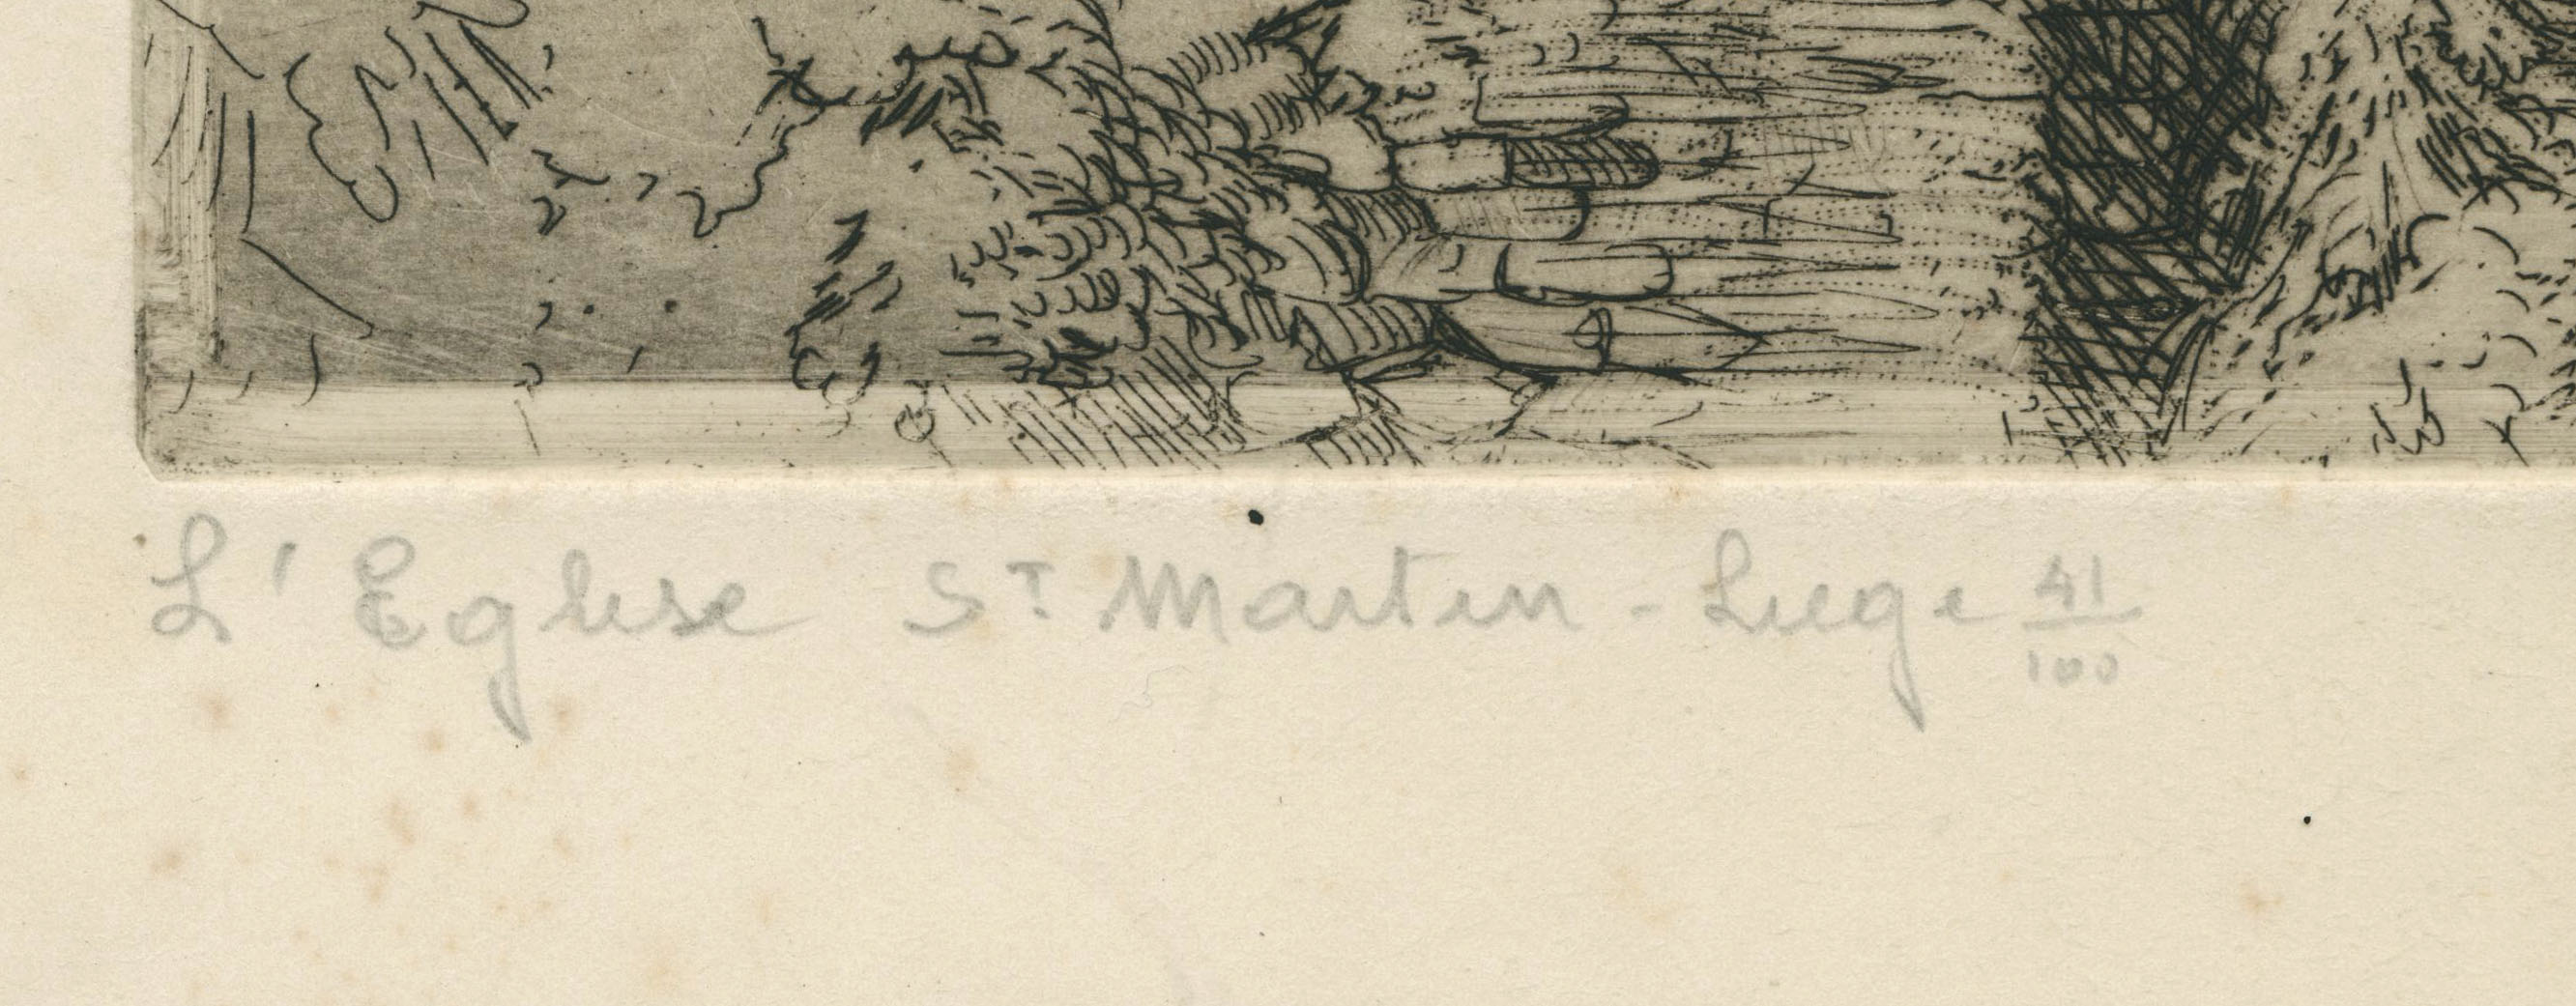 L' Eglise ST Martin - Liege 41/100